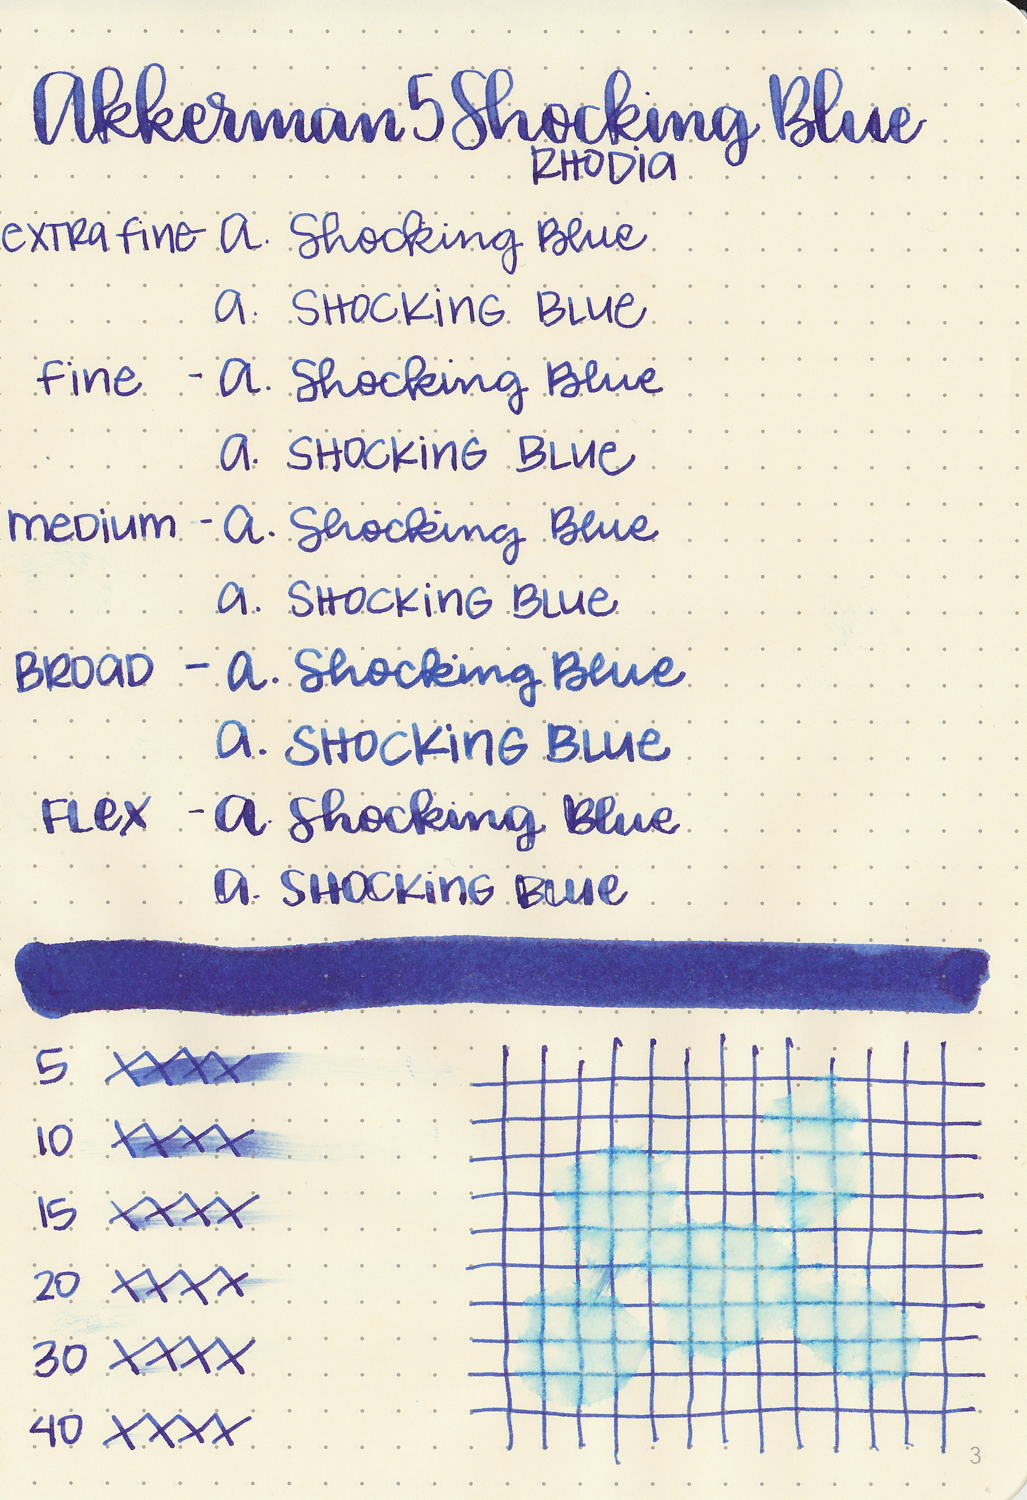 Akkerman 5 Shocking Blue
RHODIA
EXTRA fine - a. Shocking Blue
a. SHOCKING BLUE
fine - a. Shocking Blue
a. SHOCKING BLUE
MEDIUM - a. Shocking Blue
a. SHOCKING BLUE
BROAD - a. Shocking Blue
a. SHOCKING BLUE
FLEX - a. Shocking Blue
a. SHOCKING BLUE
5 XXXX
10 XXXX
15 XXXX
20 XXXX
30 XXXX
40 XXXX
3